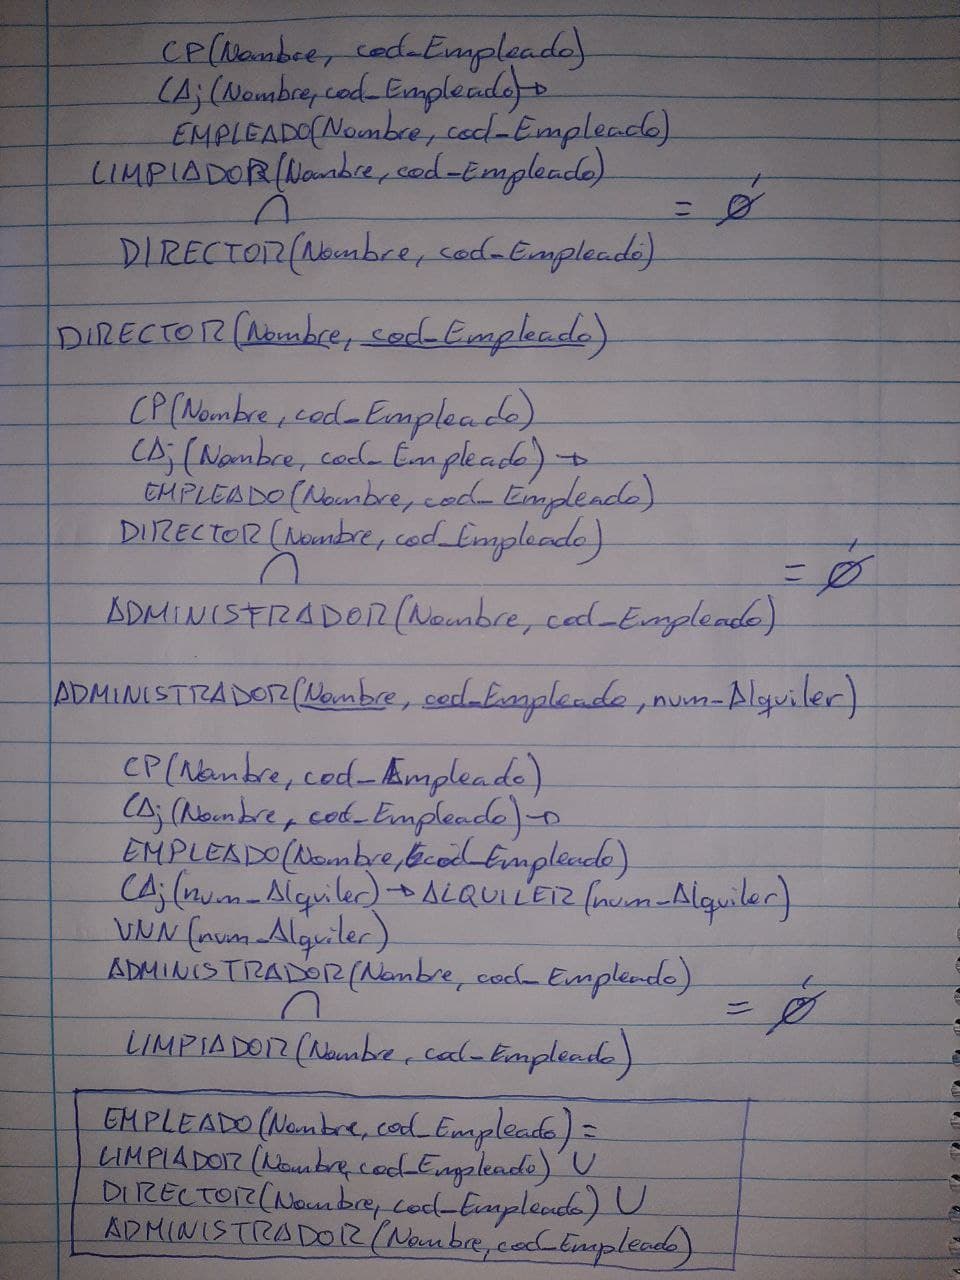 CP(Nombre, cod_Empleado)
CAj(Nombre, cod_Empleado)→
EMPLEADO(Nombre, cod_Empleado)
LIMPIADOR(Nombre, cod_Empleado)
∩ = Ø
DIRECTOR(Nombre, cod_Empleado)
DIRECTOR(Nombre, cod_Empleado)
CP(Nombre, cod_Empleado)
CAj(Nombre, cod_Empleado)→
EMPLEADO(Nombre, cod_Empleado)
DIRECTOR(Nombre, cod_Empleado)
∩ = Ø
ADMINISTRADOR(Nombre, cod_Empleado)
ADMINISTRADOR(Nombre, cod_Empleado, num_Alquiler)
CP(Nombre, cod_Empleado)
CAj(Nombre, cod_Empleado)→
EMPLEADO(Nombre, cod_Empleado)
CAj(num_Alquiler)→ALQUILER(num_Alquiler)
VNN(num_Alquiler)
ADMINISTRADOR(Nombre, cod_Empleado)
∩ = Ø
LIMPIADOR(Nombre, cod_Empleado)
EMPLEADO(Nombre, cod_Empleado) =
LIMPIADOR(Nombre, cod_Empleado) U
DIRECTOR(Nombre, cod_Empleado) U
ADMINISTRADOR(Nombre, cod_Empleado)